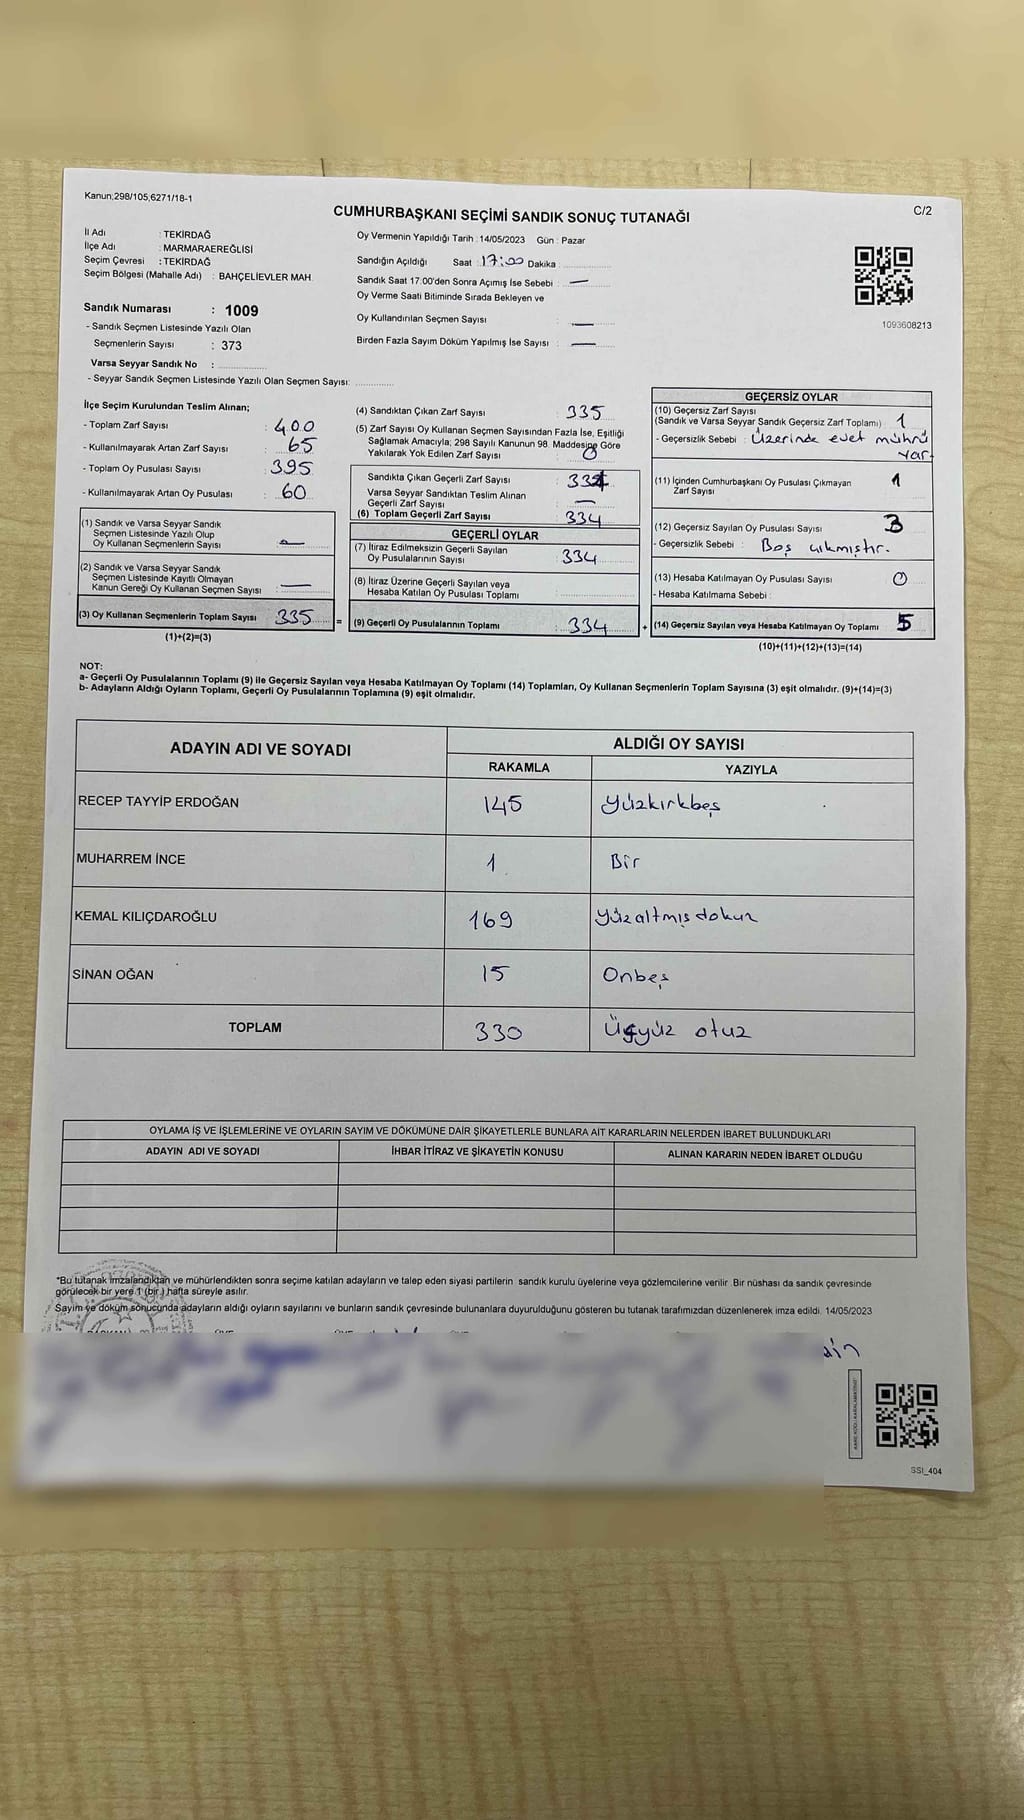 Kanun;298/105;6271/18-1
CUMHURBAŞKANI SEÇİMİ SANDIK SONUÇ TUTANAĞI
C/2
İl Adı : TEKİRDAĞ
İlçe Adı : MARMARAEREĞLİSİ
Seçim Çevresi : TEKİRDAĞ
Seçim Bölgesi (Mahalle Adı) : BAHÇELİEVLER MAH.
Sandık Numarası : 1009
- Sandık Seçmen Listesinde Yazılı Olan
Seçmenlerin Sayısı : 373
Varsa Seyyar Sandık No :
- Seyyar Sandık Seçmen Listesinde Yazılı Olan Seçmen Sayısı:
Oy Vermenin Yapıldığı Tarih : 14/05/2023 Gün : Pazar
Sandığın Açıldığı Saat 17:00 Dakika :
Sandık Saat 17:00'den Sonra Açımış İse Sebebi : —
Oy Verme Saati Bitiminde Sırada Bekleyen ve
Oy Kullandırılan Seçmen Sayısı : —
Birden Fazla Sayım Döküm Yapılmış İse Sayısı : —
1093608213
İlçe Seçim Kurulundan Teslim Alınan;
- Toplam Zarf Sayısı : 400
- Kullanılmayarak Artan Zarf Sayısı : 65
- Toplam Oy Pusulası Sayısı : 395
- Kullanılmayarak Artan Oy Pusulası : 60
(1) Sandık ve Varsa Seyyar Sandık
Seçmen Listesinde Yazılı Olup
Oy Kullanan Seçmenlerin Sayısı :
(2) Sandık ve Varsa Seyyar Sandık
Seçmen Listesinde Kayıtlı Olmayan
Kanun Gereği Oy Kullanan Seçmen Sayısı : —
(3) Oy Kullanan Seçmenlerin Toplam Sayısı : 335 =
(1)+(2)=(3)
(4) Sandıktan Çıkan Zarf Sayısı : 335
(5) Zarf Sayısı Oy Kullanan Seçmen Sayısından Fazla İse, Eşitliği
Sağlamak Amacıyla; 298 Sayılı Kanunun 98. Maddesine Göre
Yakılarak Yok Edilen Zarf Sayısı : 0
Sandıkta Çıkan Geçerli Zarf Sayısı : 334
Varsa Seyyar Sandıktan Teslim Alınan
Geçerli Zarf Sayısı : —
(6) Toplam Geçerli Zarf Sayısı : 334
GEÇERLİ OYLAR
(7) İtiraz Edilmeksizin Geçerli Sayılan
Oy Pusulalarının Sayısı : 334
(8) İtiraz Üzerine Geçerli Sayılan veya
Hesaba Katılan Oy Pusulası Toplamı :
(9) Geçerli Oy Pusulalarının Toplamı : 334 +
GEÇERSİZ OYLAR
(10) Geçersiz Zarf Sayısı
(Sandık ve Varsa Seyyar Sandık Geçersiz Zarf Toplamı) : 1
- Geçersizlik Sebebi : Üzerinde evet mührü
var.
(11) İçinden Cumhurbaşkanı Oy Pusulası Çıkmayan
Zarf Sayısı 1
(12) Geçersiz Sayılan Oy Pusulası Sayısı 3
- Geçersizlik Sebebi : Boş çıkmıştır.
(13) Hesaba Katılmayan Oy Pusulası Sayısı 0
- Hesaba Katılmama Sebebi :
(14) Geçersiz Sayılan veya Hesaba Katılmayan Oy Toplamı 5
(10)+(11)+(12)+(13)=(14)
NOT:
a- Geçerli Oy Pusulalarının Toplamı (9) ile Geçersiz Sayılan veya Hesaba Katılmayan Oy Toplamı (14) Toplamları, Oy Kullanan Seçmenlerin Toplam Sayısına (3) eşit olmalıdır. (9)+(14)=(3)
b- Adayların Aldığı Oyların Toplamı, Geçerli Oy Pusulalarının Toplamına (9) eşit olmalıdır.
ADAYIN ADI VE SOYADI
ALDIĞI OY SAYISI
RAKAMLA YAZIYLA
RECEP TAYYİP ERDOĞAN 145 Yüzkırkbeş
MUHARREM İNCE 1 Bir
KEMAL KILIÇDAROĞLU 169 Yüzaltmışdokuz
SİNAN OĞAN 15 Onbeş
TOPLAM 330 Üçyüz otuz
OYLAMA İŞ VE İŞLEMLERİNE VE OYLARIN SAYIM VE DÖKÜMÜNE DAİR ŞİKAYETLERLE BUNLARA AİT KARARLARIN NELERDEN İBARET BULUNDUKLARI
ADAYIN ADI VE SOYADI İHBAR İTİRAZ VE ŞİKAYETİN KONUSU ALINAN KARARIN NEDEN İBARET OLDUĞU
*Bu tutanak imzalandıktan ve mühürlendikten sonra seçime katılan adayların ve talep eden siyasi partilerin sandık kurulu üyelerine veya gözlemcilerine verilir. Bir nüshası da sandık çevresinde
görülecek bir yere 1 (bir ) hafta süreyle asılır.
Sayım ve döküm sonucunda adayların aldığı oyların sayılarını ve bunların sandık çevresinde bulunanlara duyurulduğunu gösteren bu tutanak tarafımızdan düzenlenerek imza edildi. 14/05/2023
SSI_404